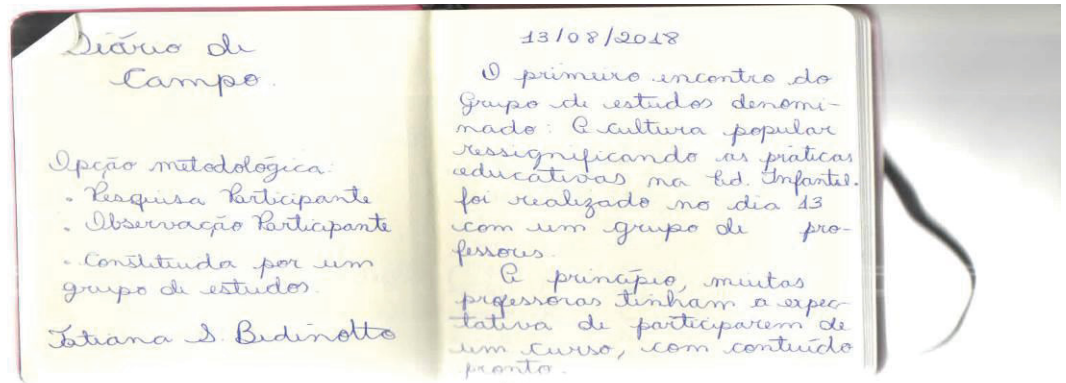 Diário de
Campo.
Opção metodológica:
. Pesquisa Participante
. Observação Participante
. Constituída por um
grupo de estudos.
Tatiana S. Bedinotto
13/08/2018
O primeiro encontro do
Grupo de estudos denomi-
nado: A cultura popular
ressignificando as práticas
educativas na Ed. Infantil.
foi realizado no dia 13
com um grupo de pro-
fessores.
A princípio, muitas
professoras tinham a expec-
tativa de participarem de
um curso, com conteúdo
pronto.